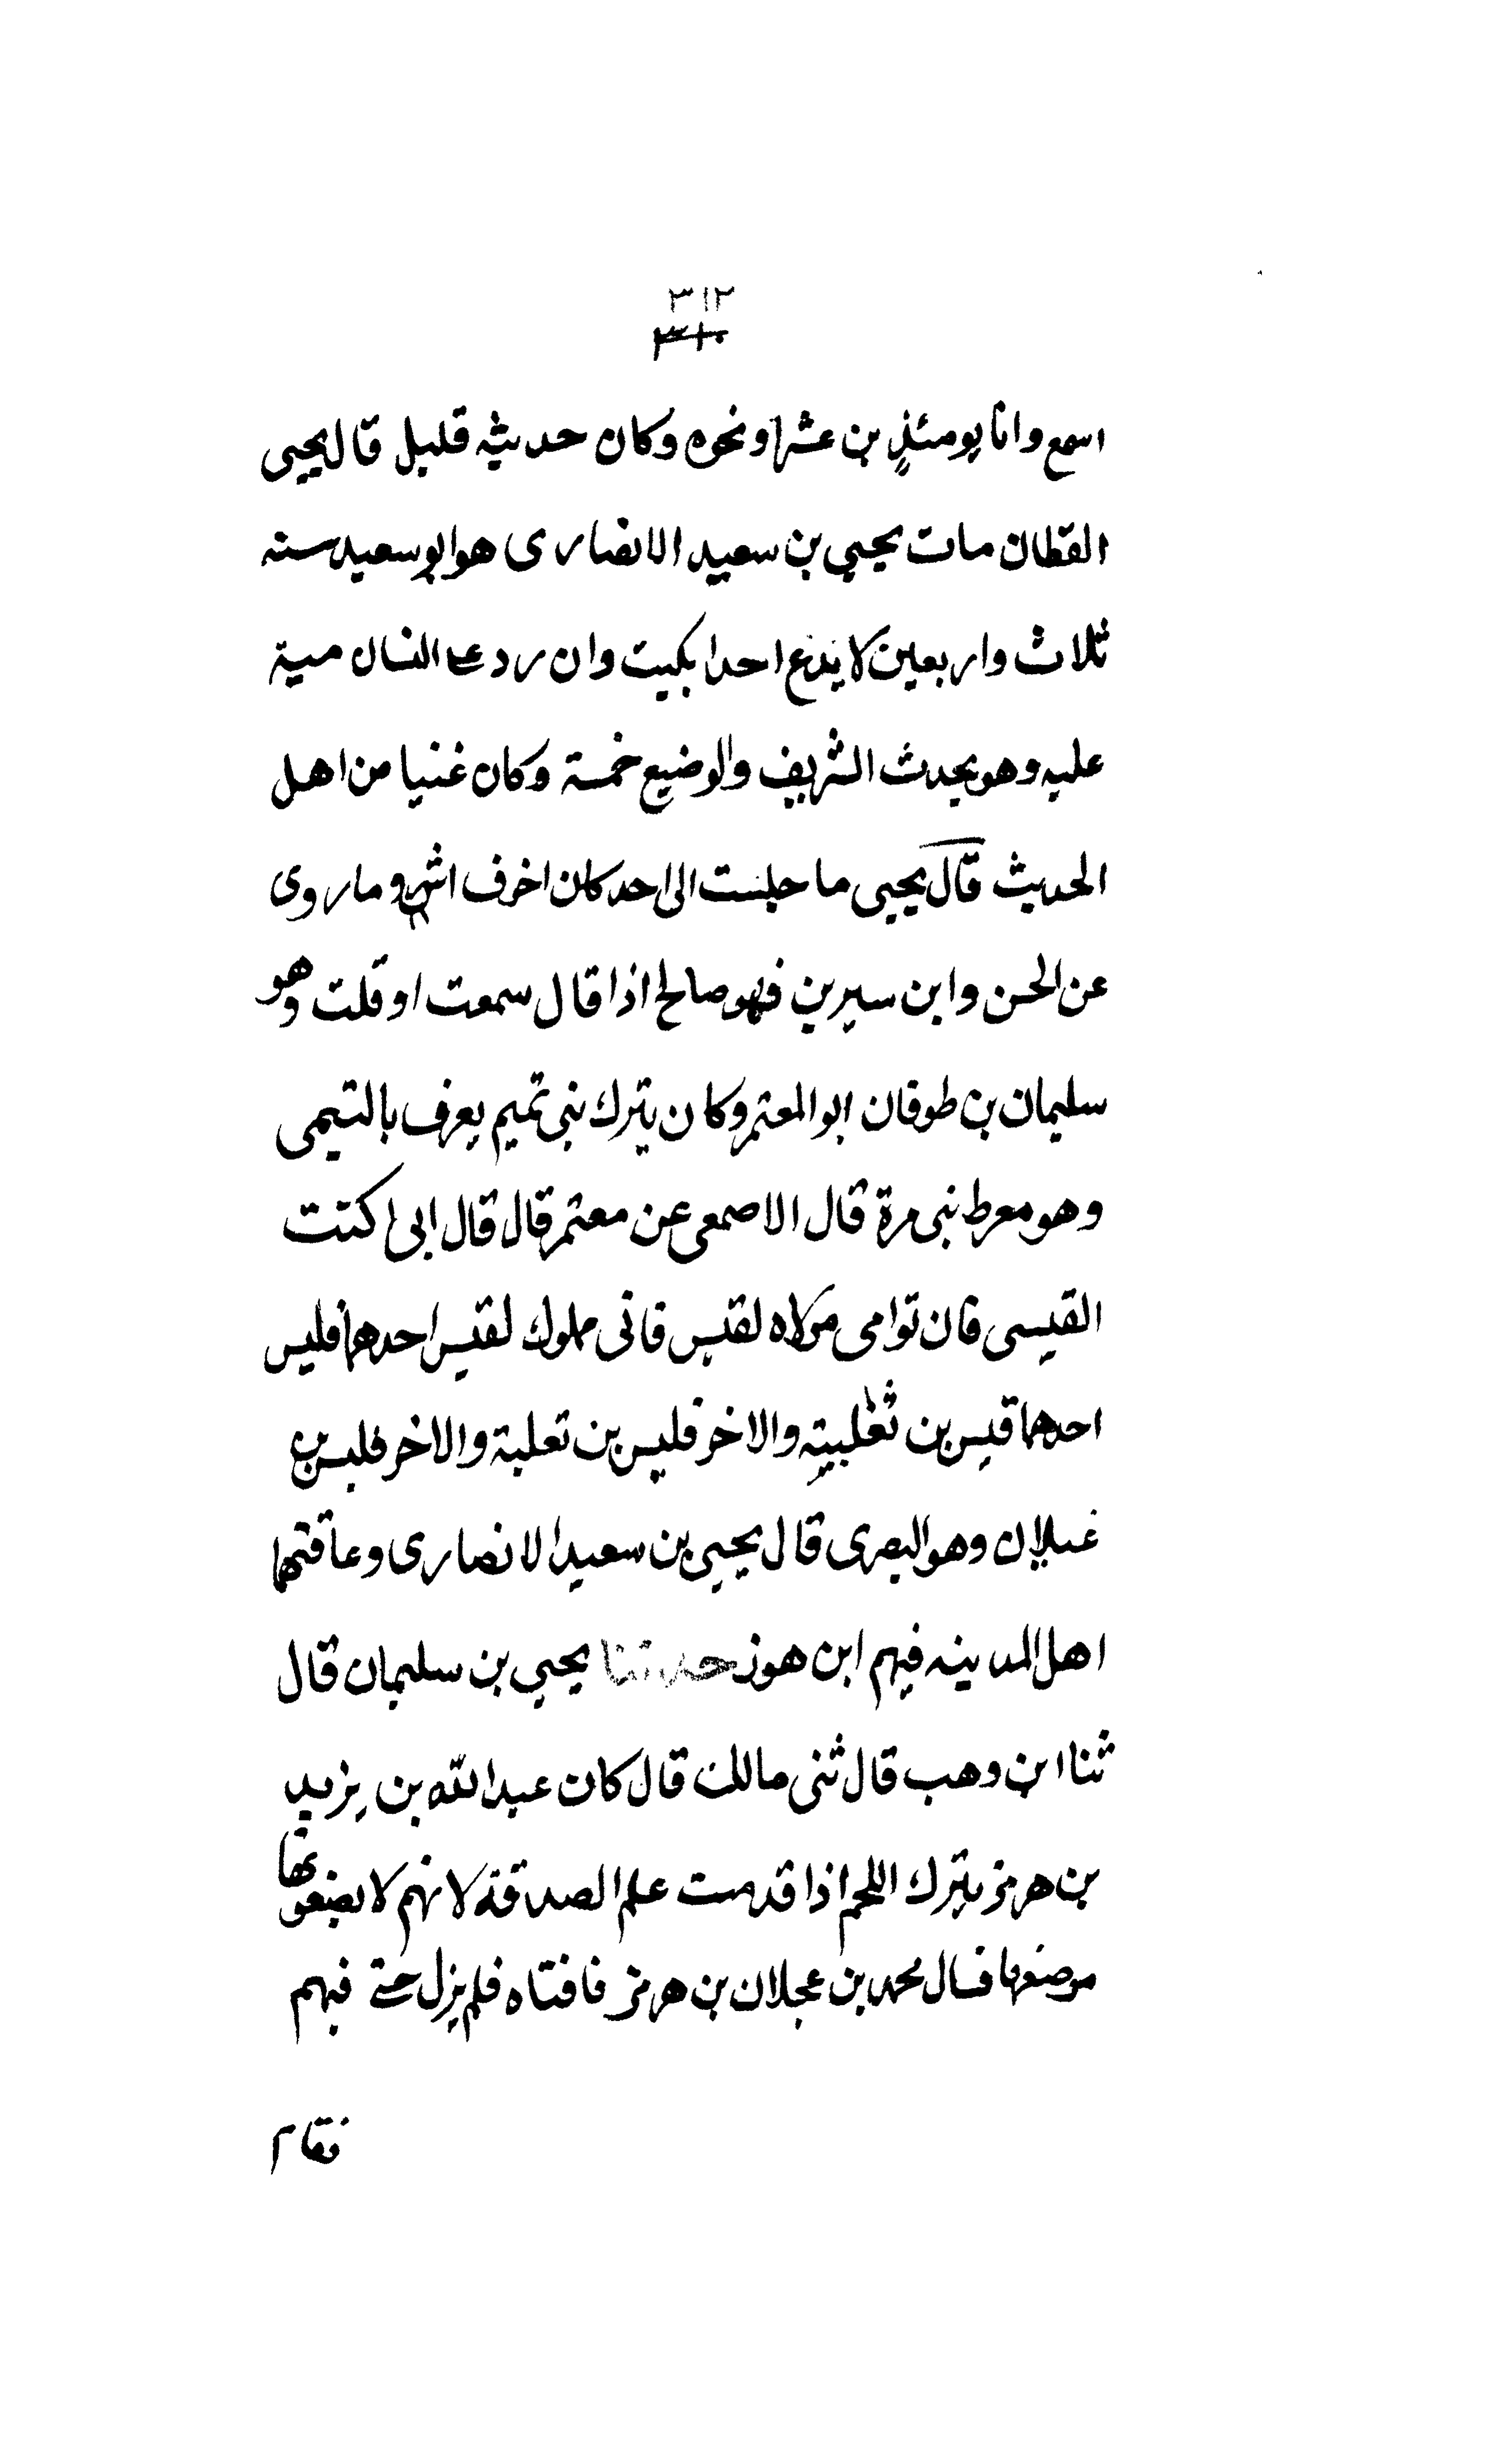 ٣١٢
٣١٠
اسمع وانا يومئذ بن عشر او نحوه وكان حديثه قليل قال يحيى
القطان مات يحيى بن سعيد الانصارى هو ابو سعيد سنه
ثلاث واربعين لا يدع احدا بكيت وان رد على النسان مية
عليه وهو يحدث الشريف والوضيع خمسة وكان غنيا من اهل
الحديث قال يحيى ما جلست الى احد كان اخرف اشر وما روى
عن الحسن وابن سيرين فهو صالح اذا قال سمعت او قلت وهو
سليمان بن طوفان ابو المعتمر وكان يترك بنى تميم يعرف بالتيمى
وهو معرط بنى مرة قال الاصمعى عن معتمر قال قال ابى اكتت
القيسى فان توامى مرلاه لقيس فانى مملوك لقيس احدهما فليس
احدهما قيس بن ثعلبيته والاخر فليس بن تعلبة والاخر فليس بن
غيلان وهو البصرى قال يحيى بن سعيد الانصارى وعاقتهما
اهل المدينه فيهم ابن هوز حدثنا يحيى بن سليمان قال
ثنا ابن وهب قال ثنى مالك قال كان عبد الله بن يزيد
بن هرمز يترك اللحم اذا قدمت علم الصدقة لانهم لا يضعونها
موضعها فسال محمد بن عجلان بن هرمز فافتاه فلم يزل حتى فهم
فقام